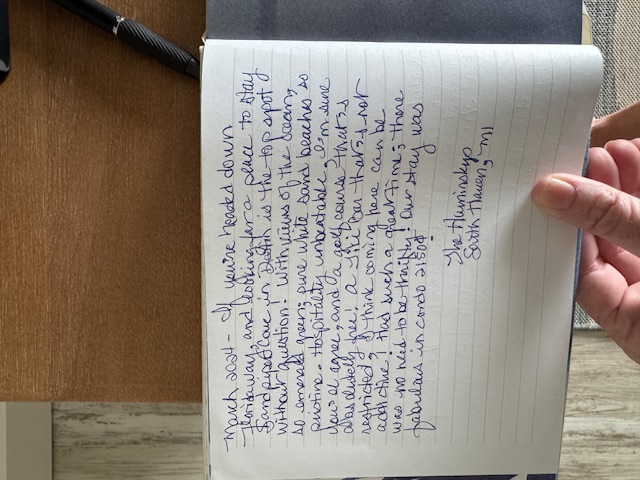 March 2024 - If you're headed down
and looking for a place to stay
Sandpiper Cove in Destin is the top spot
without question! With views of the ocean,
so emerald green; pure white sand beaches so
pristine. Hospitality unbeatable, I'm sure
you'll agree, and a golf course that's
absolutely free! A Tiki bar that's not
restricted, I think coming here can be
addictive; I had such a great time; there
was no need to be thrifty! Our stay was
fabulous in condo
The
South Haven, MI